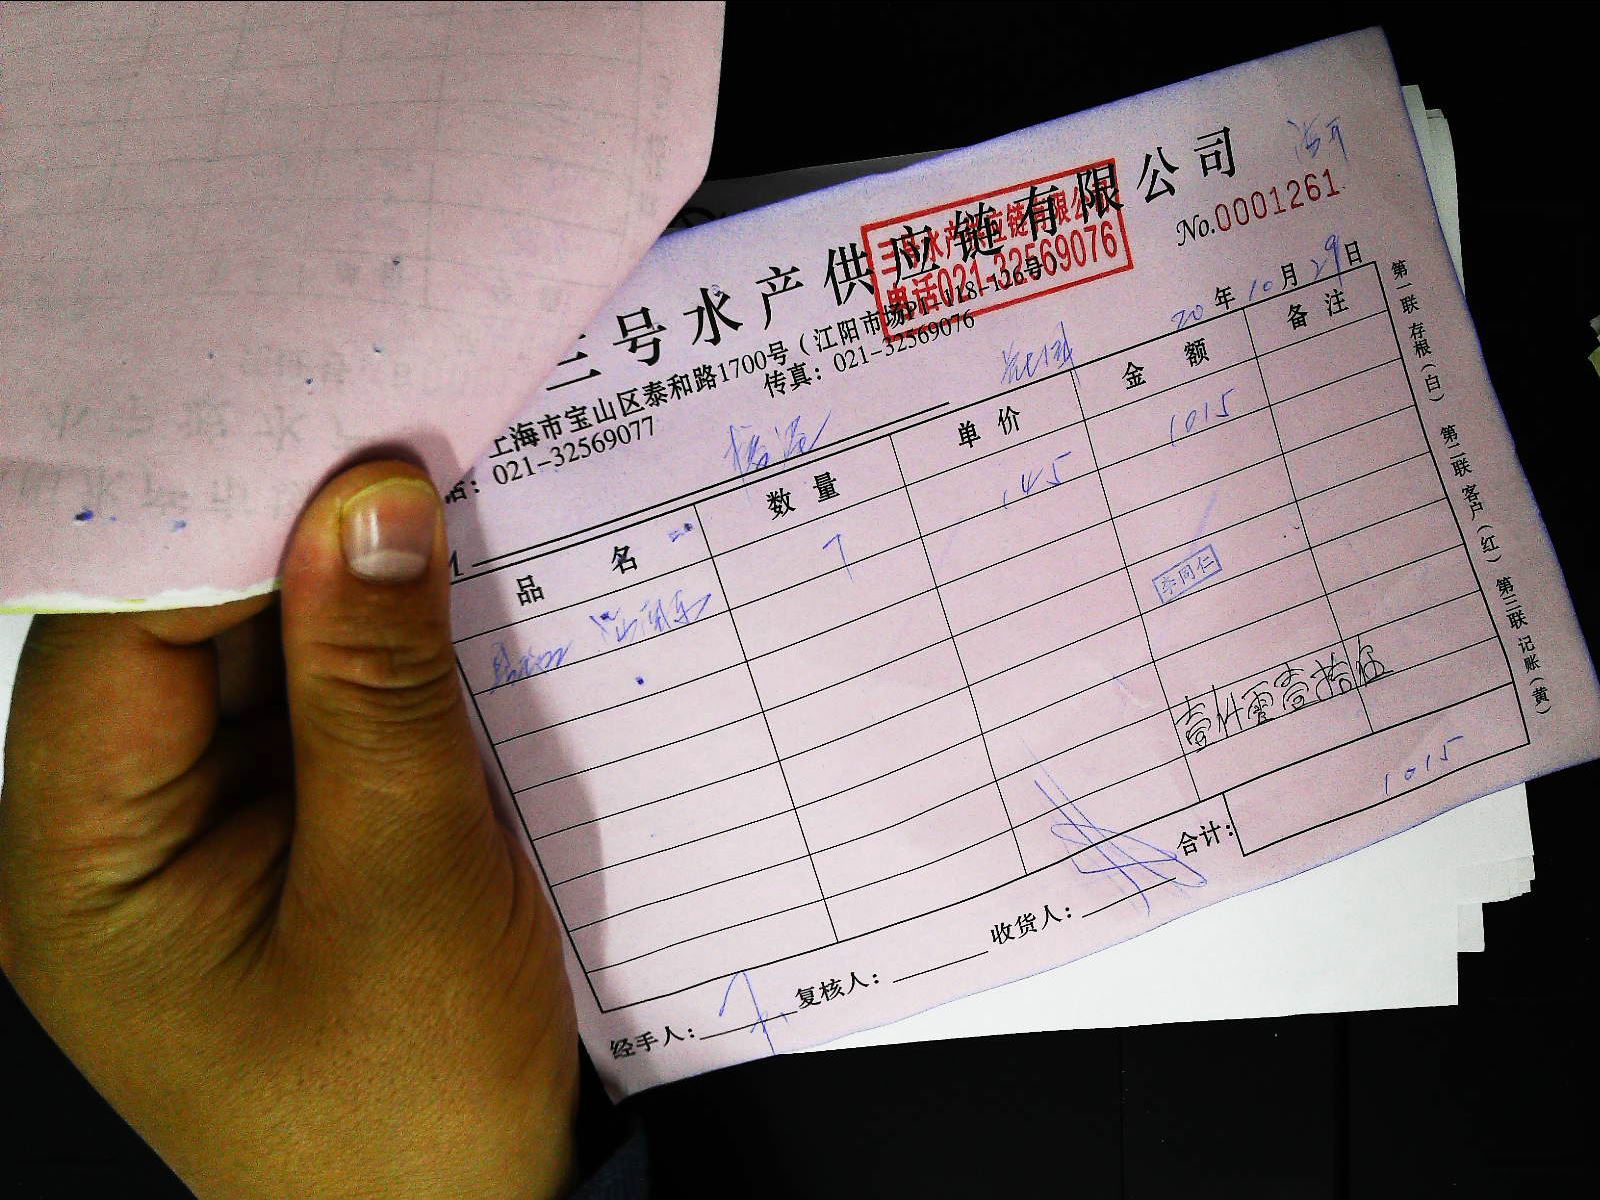 三号水产供应链有限公司
三号水产供应链有限公
电话021-32569076
No.0001261
上海市宝山区泰和路1700号(江阳市场P1-118-126号)
021-32569077 传真:021-32569076
20年10月29日
品名 数量 单价 金额 备注
7 145 1015
李同仁
壹仟零壹拾伍
合计: 1015
经手人: 复核人: 收货人:
第一联 存根(白) 第二联 客户(红) 第三联 记账(黄)